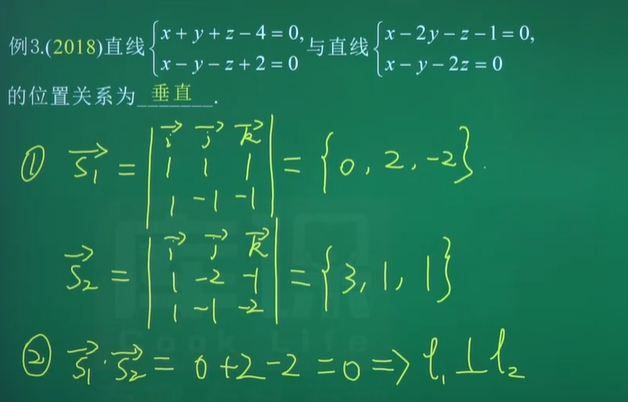 例3.(2018)直线{x+y+z-4=0, x-y-z+2=0 与直线{x-2y-z-1=0, x-y-2z=0
的位置关系为 垂直 .
① →s₁ = |→i →j →k; 1 1 1; 1 -1 -1| = {0, 2, -2}.
→s₂ = |→i →j →k; 1 -2 -1; 1 -1 -2| = {3, 1, 1}
② →s₁·→s₂ = 0+2-2=0 => l₁⊥l₂